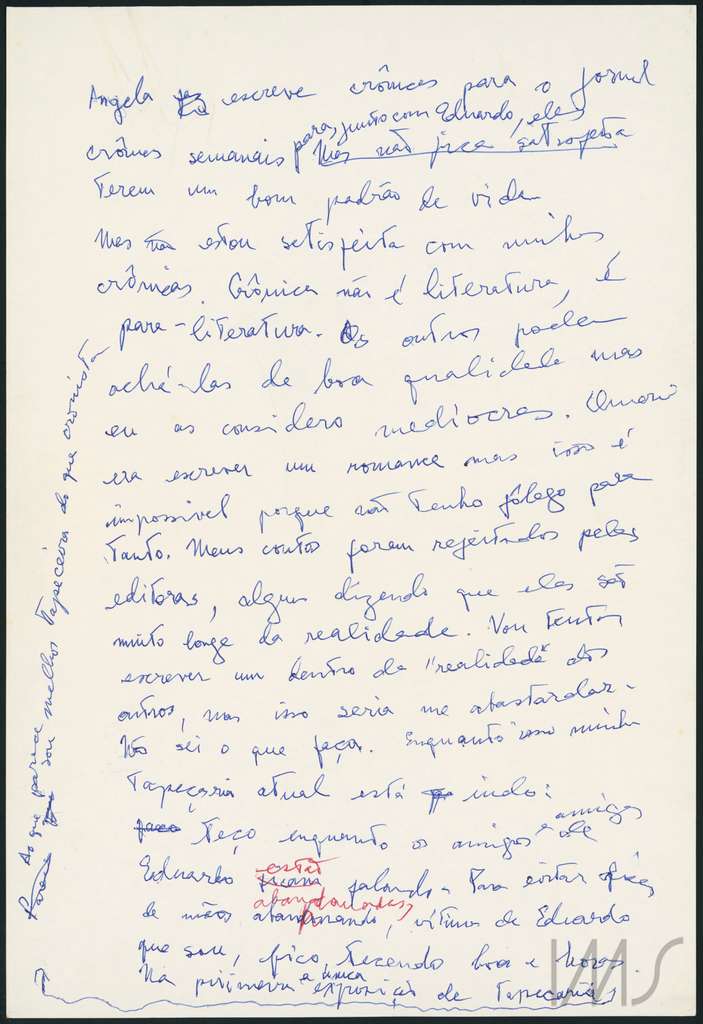 Angela escreve crônicas para o jornal
para, junto com Eduardo, eles
crônicas semanais Mas não fica satisfeita
terem um bom padrão de vida
Mas estou satisfeita com minhas
crônicas. Crônica não é literatura, é
para-literatura. Os outros podem
achá-las de boa qualidade mas
eu as considero mediocres. Queria
era escrever um romance mas isso é
impossivel porque não tenho fôlego para
tanto. Meus contos foram rejeitados pelas
editoras, algum dizendo que eles são
muito longe da realidade. Vou tentar
escrever um dentro da "realidade" dos
outros, mas isso seria me abastardar.
Nõ sei o que faça. Enquanto isso minha
tapeçaria atual está indo:
faço teço enquanto os amigos e amigas de
Eduardo estão falando. Para evitar ficar
de mãos abandonadas, vítima de Eduardo
que sou, fico tecendo hora e horas.
Na primeira e única exposição de tapeçarias
Ao que parece sou melhor tapeceira do que cronista
IMS